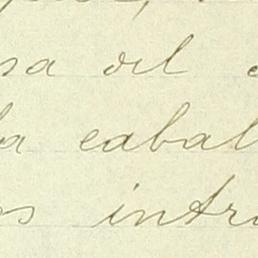 sa del
la cabal
os intro